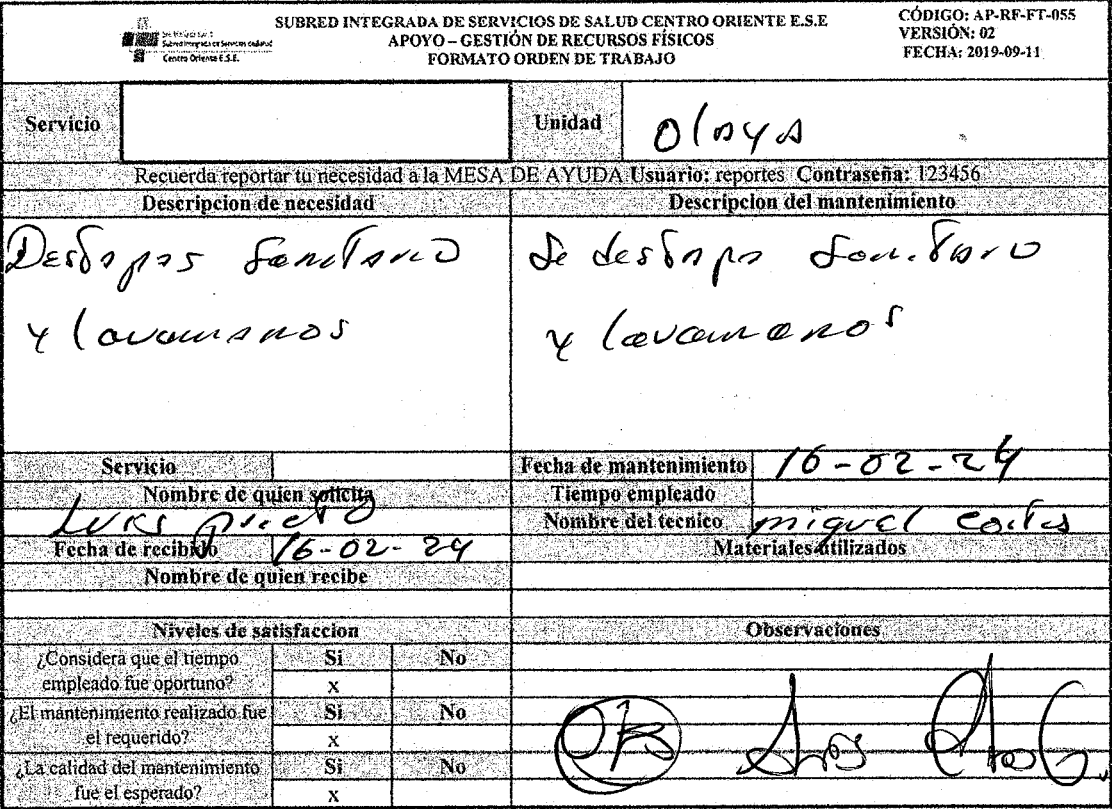 SUBRED INTEGRADA DE SERVICIOS DE SALUD CENTRO ORIENTE E.S.E
APOYO – GESTIÓN DE RECURSOS FÍSICOS
FORMATO ORDEN DE TRABAJO
CÓDIGO: AP-RF-FT-055
VERSIÓN: 02
FECHA: 2019-09-11
Centro Oriente E.S.E.
Servicio
Unidad Olaya
Recuerda reportar tu necesidad a la MESA DE AYUDA Usuario: reportes Contraseña: 123456
Descripcion de necesidad
Destapas Sanitario
y lavamanos
Descripcion del mantenimiento
Se destapa Sanitario
y lavamanos
Servicio
Nombre de quien solicita
Luis
Fecha de recibido 16-02-24
Nombre de quien recibe
Fecha de mantenimiento 16-02-24
Tiempo empleado
Nombre del tecnico miguel Cortes
Materiales utilizados
Niveles de satisfaccion
¿Considera que el tiempo
empleado fue oportuno?
Si No
x
¿El mantenimiento realizado fue
el requerido?
Si No
x
¿La calidad del mantenimiento
fue el esperado?
Si No
x
Observaciones